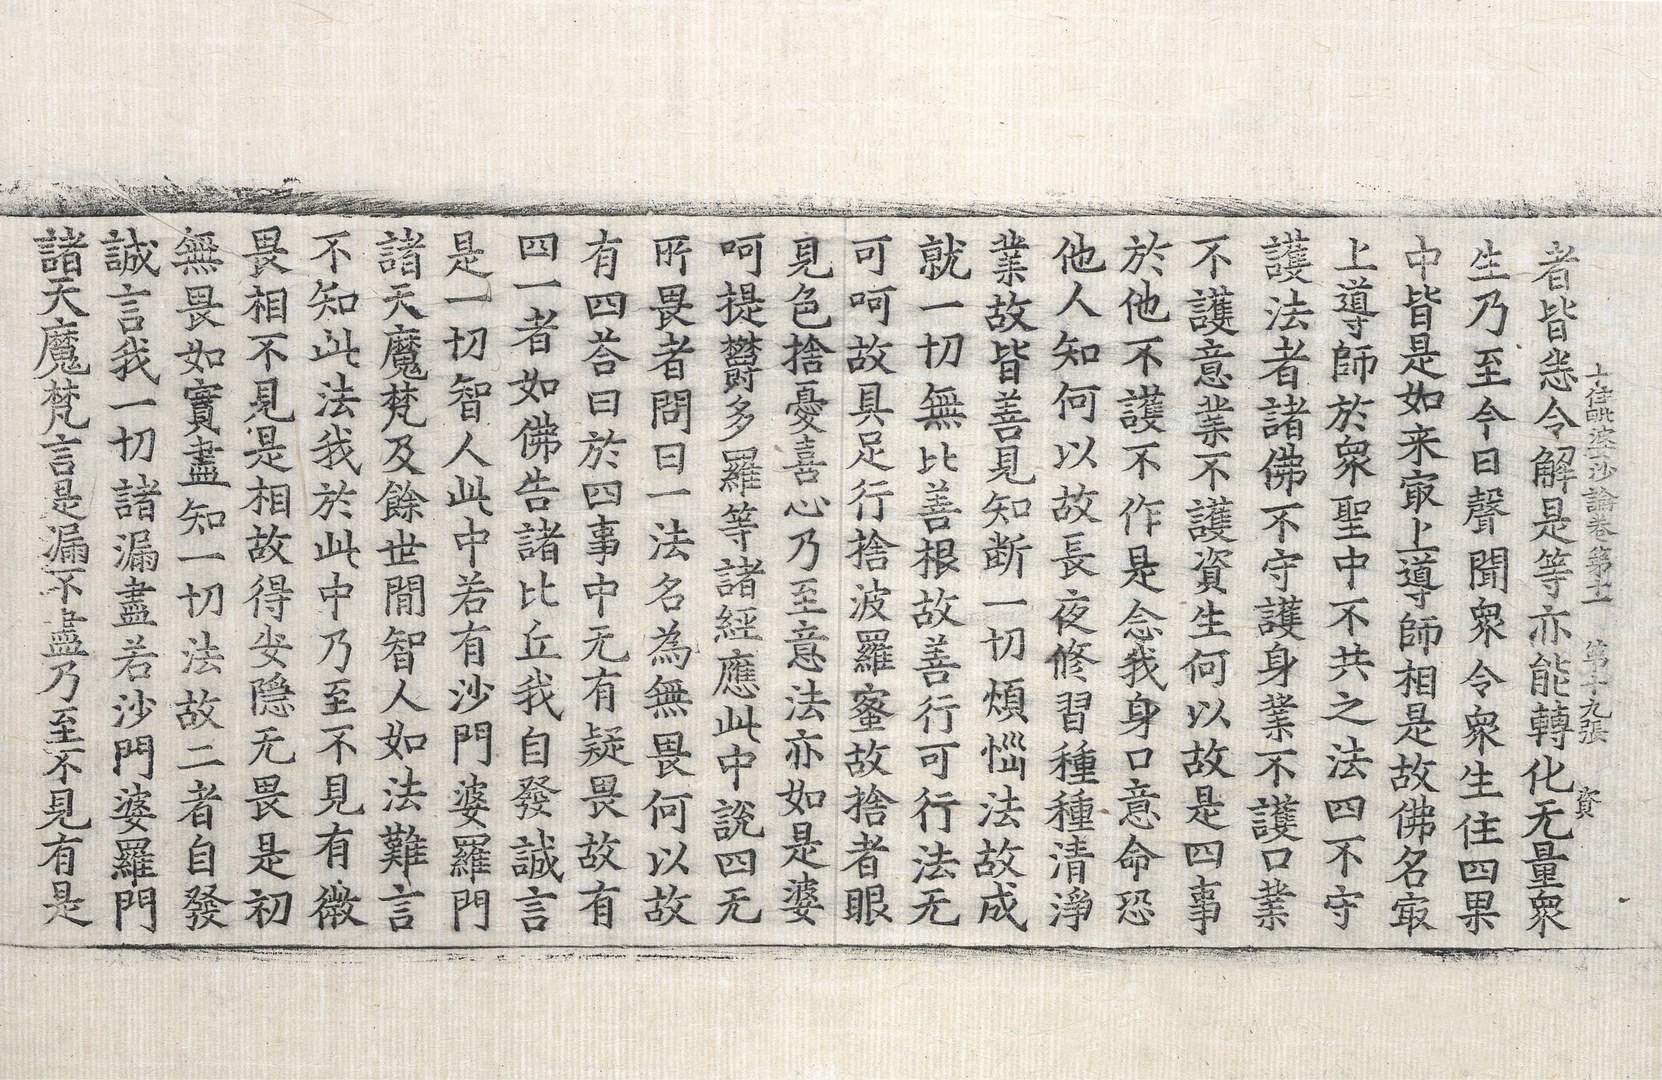 十住毗婆沙論卷第十一　第十九張　資
者皆悉令解是等亦能轉化无量衆
生乃至今日聲聞衆令衆生住四果
中皆是如来㝡上導師相是故佛名㝡
上導師於衆聖中不共之法四不守
護法者諸佛不守護身業不護口業
不護意業不護資生何以故是四事
於他不護不作是念我身口意命恐
他人知何以故長夜修習種種清淨
業故皆善見知断一切煩惱法故成
就一切無比善根故善行可行法无
可呵故具足行捨波羅蜜故捨者眼
見色捨憂喜心乃至意法亦如是婆
呵提欝多羅等諸經應此中說四无
所畏者問曰一法名為無畏何以故
有四荅曰於四事中无有疑畏故有
四一者如佛告諸比丘我自發誠言
是一切智人此中若有沙門婆羅門
諸天魔梵及餘世間智人如法難言
不知此法我於此中乃至不見有微
畏相不見是相故得安隱无畏是初
無畏如實盡知一切法故二者自發
誠言我一切諸漏盡若沙門婆羅門
諸天魔梵言是漏不盡乃至不見有是